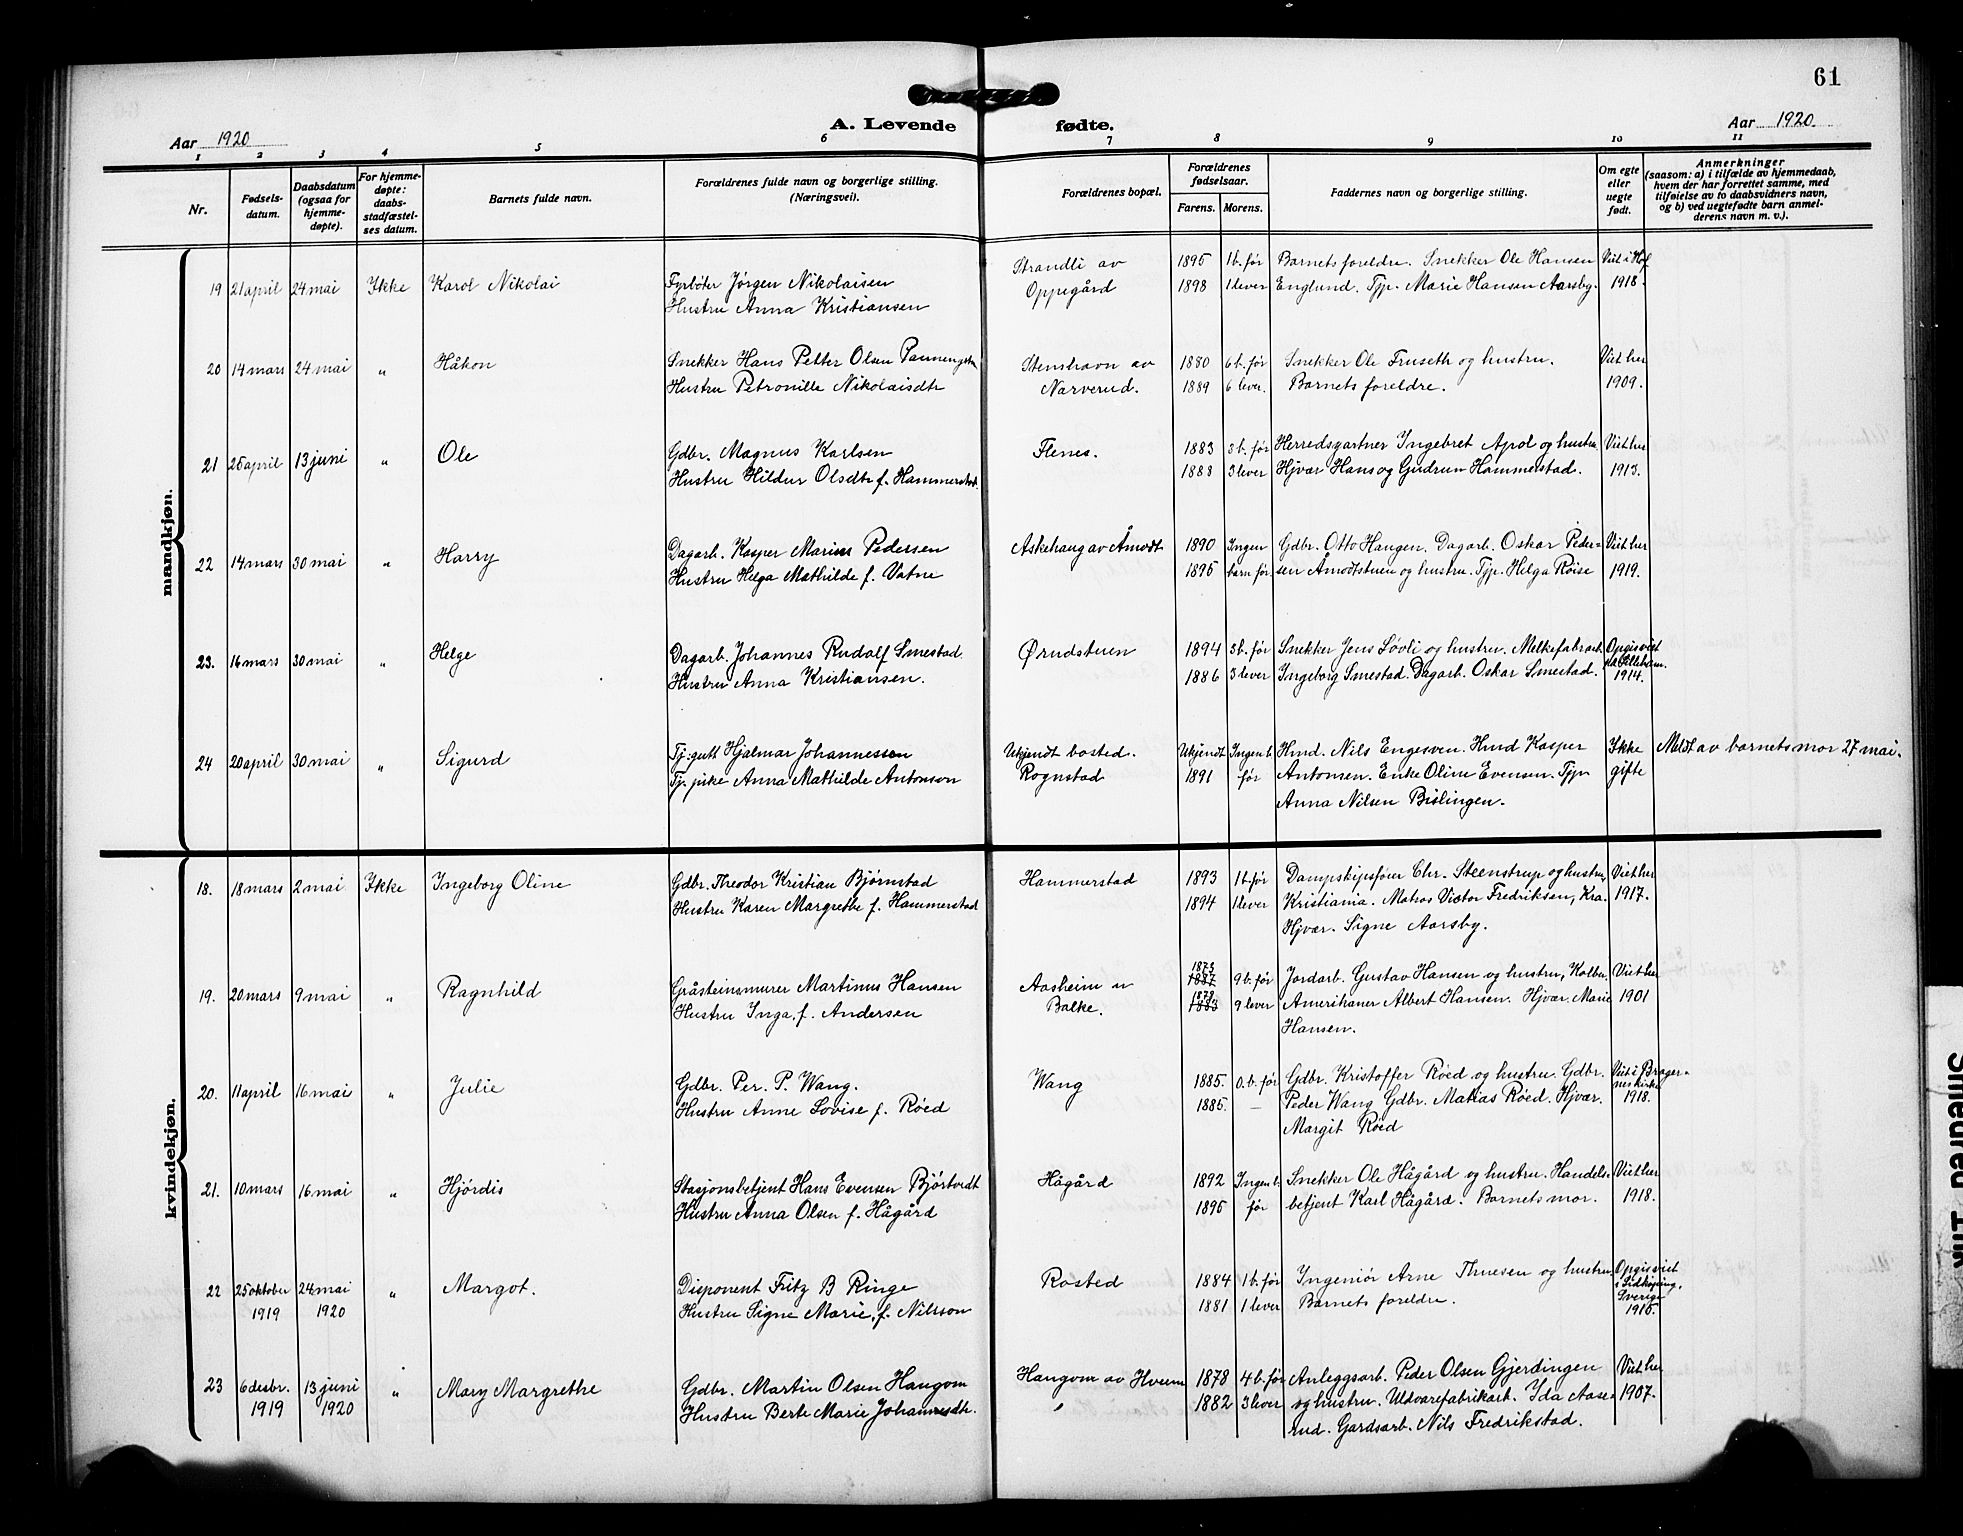 61
A. Levende fødte.
Aar 1920
Aar 1920.
1 2 3 4 5 6 7 8 9 10 11
Nr.
Fødsels-
datum.
Daabsdatum
(ogsaa for
hjemme-
døpte).
For hjemme-
døpte:
daabs-
stadfæstel-
ses datum.
Barnets fulde navn.
Forældrenes fulde navn og borgerlige stilling.
(Næringsvei).
Forældrenes bopæl.
Forældrenes
fødselsaar.
Farens. Morens.
Faddernes navn og borgerlige stilling.
Om egte
eller
uegte
født.
Anmerkninger
(saasom: a) i tilfælde av hjemmedaab,
hvem der har forrettet samme, med
tilføielse av to daabsvidners navn,
og b) ved uegtefødte barn anmel-
derens navn m. v.).
mandkjøn.
19 21 april 24 mai Ikke Karol Nikolai
Fyrbøter Jørgen Nikolaisen
Hustru Anna Kristiansen
Strandli av
Oppegård
1895 1 b. før
1898 1 lever
Barnets foreldre. Snekker Ole Hansen
Englund. Tjp. Marie Hansen Aarsby.
Viet i Hof
1918.
20 14 mars 24 mai " Håkon
Snekker Hans Petter Olsen
Hustru Petronille Nikolaisdtr
Stenshavn av
Narverud.
1880 6 b. før
1889 6 lever.
Snekker Ole Fruseth og hustru.
Barnets foreldre.
Viet her
1909.
21 25 april 13 juni " Ole
Gdbr. Magnus Karlsen
Hustru Hildur Olsdtr f. Hammerstad.
Flenes.
1883 3 b. før
1888 3 lever
Herredsgartner Ingebret Apol og hustru.
Hjvær Hans og Gudrun Hammerstad.
Viet her
1913.
22 14 mars 30 mai " Harry
Dagarb. Kasper Marius Pedersen
Hustru Helga Mathilde f. Vatne
Askehaug av Åmodt
1890 Ingen
1895 barn før.
Gdbr. Otto Haugen. Dagarb. Oskar Peder=
sen Åmodtstuen og hustru. Tjp. Helga Røise
Viet her
1919.
23. 16 mars 30 mai " Helge
Dagarb. Johannes Rudolf Smestad.
Hustru Anna Kristiansen.
Ørudstuen
1894 3 b. før
1886 3 lever
Snekker Jens Løvli og hustru. Melkefabrarb.
Ingeborg Smestad. Dagarb. Oskar Smestad.
Opgis viet
1914.
24 20 april 30 mai " Sigurd
Tj. gutt Hjalmar Johannessen
Tj. pike Anna Mathilde Antonson
Ukjendt bosted.
Rognstad
Ukjendt Ingen b.
1891 før
Hmd. Nils Engesven. Hmd Kasper
Antonsen. Enke Oline Evensen. Tjp
Anna Nilsen Bislingen.
Ikke
gifte
Meldt av barnets mor 27 mai.
kvindekjøn.
18. 18 mars 2 mai Ikke Ingeborg Oline
Gdbr. Theodor Kristian Bjørnstad
Hustru Karen Margrethe f. Hammerstad
Hammerstad
1893 1 b. før
1894 1 lever
Dampskipsfører Chr. Steenstrup og hustru,
Kristiania. Matros Victor Fredriksen, Kra.
Hjvær. Signe Aarsby.
Viet her
1917.
19. 20 mars 9 mai " Ragnhild
Gråsteinsmurer Martinus Hansen
Hustru Inga, f. Andersen
Aasheim u
Balke.
1873
9 b. før
1878
1883 9 lever
Jordarb. Gustav Hansen og hustru, Kolbu.
Amerikaner Albert Hansen. Hjvær. Marie
Hansen.
Viet her
1901
20. 11 april 16 mai " Julie
Gdbr. Per. P. Wang.
Hustru Anne Lovise f. Røed
Wang
1885. 0. b. før
1885. —
Gdbr. Kristoffer Røed og hustru. Gdbr.
Peder Wang Gdbr. Matias Røed. Hjvær.
Margit Røed
Viet i Brager-
nes kirke
1918.
21. 10 mars 16 mai " Hjørdis
Stasjonsbetjent Hans Evensen Bjørtvedt
Hustru Anna Olsen f. Hågård
Hågård
1892 Ingen b.
1895 før
Snekker Ole Hågård og hustru. Handels-
betjent Karl Hågård. Barnets mor.
Viet her
1918.
22 25 oktober 24 mai " Margot.
1919 1920
Disponent Fritz B Ringe
Hustru Signe Marie, f. Nilsson
Rosted
1884 1 b. før
1881 1 lever
Ingeniør Arne Thuesen og hustru.
Barnets foreldre.
Opgis viet
i Lidköping,
Sverige
1915.
23 6 desbr. 13 juni " Mary Margrethe
1919 1920
Gdbr. Martin Olsen Haugom
Hustru Berte Marie Johannesdtr.
Haugom av Hveem
1878 4 b. før
1882 3 lever
Anleggsarb. Peder Olsen Gjerdingen
og hustru. Uldvarefabrikarb. Ida Aase-
rud. Gardsarb. Nils Fredrikstad.
Viet her
1907.